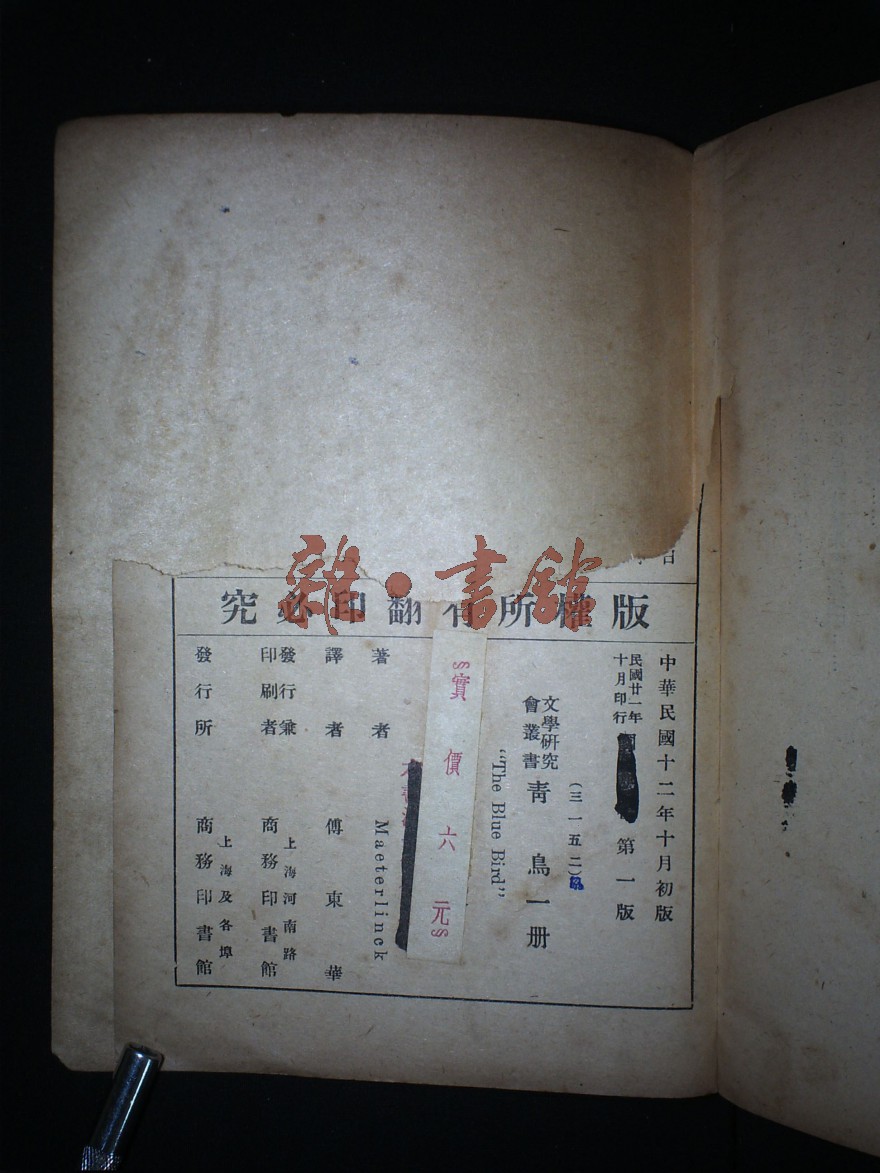 雜·書館
版權所有翻印必究
中華民國十二年十月初版
民國廿一年
十月印行
第一版
(三一五二)
文學研究
會叢書
青鳥一册
"The Blue Bird"
§實價六元§
著者
Maeterlinck
譯者 傅東華
發行兼
印刷者
上海河南路
商務印書館
發行所
上海及各埠
商務印書館